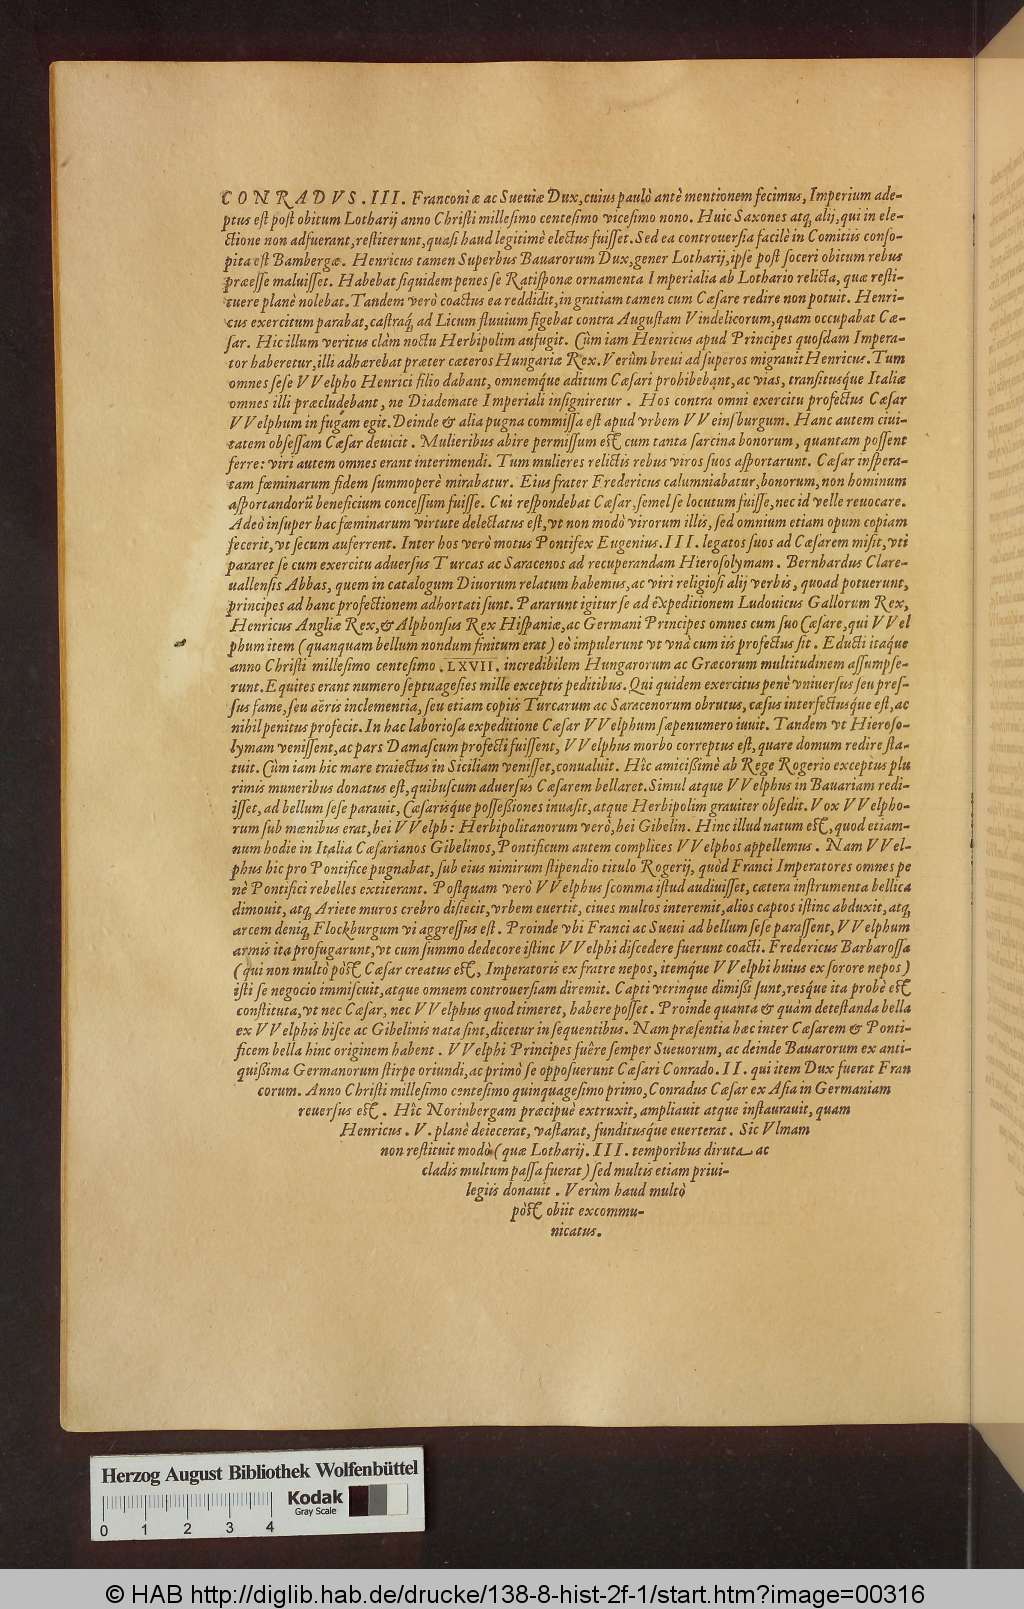 CONRADVS.III. Franconiæ ac Sueuiæ Dux, cuius paulò antè mentionem fecimus, Imperium ade-
ptus est post obitum Lotharij anno Christi millesimo centesimo vicesimo nono. Huic Saxones atq; alij, qui in ele-
ctione non adfuerant, restiterunt, quasi haud legitimè electus fuisset. Sed ea controuersia facilè in Comitiis conso-
pita est Bambergæ. Henricus tamen Superbus Bauarorum Dux, gener Lotharij, ipse post soceri obitum rebus
præesse maluisset. Habebat siquidem penes se Ratisponæ ornamenta Imperialia ab Lothario relicta, quæ resti-
tuere planè nolebat. Tandem verò coactus ea reddidit, in gratiam tamen cum Cæsare redire non potuit. Henri-
cus exercitum parabat, castraq́; ad Licum fluuium figebat contra Augustam Vindelicorum, quam occupabat Cæ-
sar. Hic illum veritus clàm noctu Herbipolim aufugit. Cùm iam Henricus apud Principes quosdam Impera-
tor haberetur, illi adhærebat præter cæteros Hungariæ Rex. Verùm breui ad superos migrauit Henricus. Tum
omnes sese VVelpho Henrici filio dabant, omnemq́ue aditum Cæsari prohibebant, ac vias, transitusque Italiæ
omnes illi præcludebant, ne Diademate Imperiali insigniretur. Hos contra omni exercitu profectus Cæsar
VVelphum in fugam egit. Deinde & alia pugna commissa est apud vrbem VVeinsburgum. Hanc autem ciui-
tatem obsessam Cæsar deuicit. Mulieribus abire permissum est cum tanta sarcina bonorum, quantam possent
ferre: viri autem omnes erant interimendi. Tum mulieres relictis rebus viros suos asportarunt. Cæsar inspera-
tam fœminarum fidem summoperè mirabatur. Eius frater Fredericus calumniabatur, bonorum, non hominum
asportandorū beneficium concessum fuisse. Cui respondebat Cæsar, semel se locutum fuisse, nec id velle reuocare.
Adeò insuper hac fœminarum virtute delectatus est, vt non modò virorum illis, sed omnium etiam opum copiam
fecerit, vt secum auferrent. Inter hos verò motus Pontifex Eugenius.III. legatos suos ad Cæsarem misit, vti
pararet se cum exercitu aduersus Turcas ac Saracenos ad recuperandam Hierosolymam. Bernhardus Clare-
uallensis Abbas, quem in catalogum Diuorum relatum habemus, ac viri religiosi alij verbis, quoad potuerunt,
principes ad hanc profectionem adhortati sunt. Pararunt igitur se ad expeditionem Ludouicus Gallorum Rex,
Henricus Angliæ Rex, & Alphonsus Rex Hispaniæ, ac Germani Principes omnes cum suo Cæsare, qui VVel
phum item (quanquam bellum nondum finitum erat) eò impulerunt vt vnà cum iis profectus sit. Educti itaque
anno Christi millesimo centesimo .LXVII. incredibilem Hungarorum ac Græcorum multitudinem assumpse-
runt. Equites erant numero septuagesies mille exceptis peditibus. Qui quidem exercitus penè vniuersus seu pres-
sus fame, seu aëris inclementia, seu etiam copiis Turcarum ac Saracenorum obrutus, cæsus interfectusque est, ac
nihil penitus profecit. In hac laboriosa expeditione Cæsar VVelphum sæpenumero iuuit. Tandem vt Hieroso-
lymam venissent, ac pars Damascum profecti fuissent, VVelphus morbo correptus est, quare domum redire sta-
tuit. Cùm iam hic mare traiectus in Siciliam venisset, conualuit. Hîc amicissimè ab Rege Rogerio exceptus plu
rimis muneribus donatus est, quibuscum aduersus Cæsarem bellaret. Simul atque VVelphus in Bauariam redi-
isset, ad bellum sese parauit, Cæsarisq́ue possessiones inuasit, atque Herbipolim grauiter obsedit. Vox VVelpho-
rum sub mœnibus erat, hei VVelph: Herbipolitanorum verò, hei Gibelin. Hinc illud natum est, quod etiam-
num hodie in Italia Cæsarianos Gibelinos, Pontificum autem complices VVelphos appellemus. Nam VVel-
phus hic pro Pontifice pugnabat, sub eius nimirum stipendio titulo Rogerij, quòd Franci Imperatores omnes pe
nè Pontifici rebelles extiterant. Postquam verò VVelphus scomma istud audiuisset, cætera instrumenta bellica
dimouit, atq; Ariete muros crebro disiecit, vrbem euertit, ciues multos interemit, alios captos istinc abduxit, atq;
arcem deniq; Flockburgum vi aggressus est. Proinde vbi Franci ac Sueui ad bellum sese parassent, VVelphum
armis ita profugarunt, vt cum summo dedecore istinc VVelphi discedere fuerunt coacti. Fredericus Barbarossa
(qui non multò pòst Cæsar creatus est, Imperatoris ex fratre nepos, itemque VVelphi huius ex sorore nepos)
isti se negocio immiscuit, atque omnem controuersiam diremit. Capti vtrinque dimissi sunt, resque ita probè est
constituta, vt nec Cæsar, nec VVelphus quod timeret, habere posset. Proinde quanta & quàm detestanda bella
ex VVelphis hisce ac Gibelinis nata sint, dicetur in sequentibus. Nam præsentia hæc inter Cæsarem & Ponti-
ficem bella hinc originem habent. VVelphi Principes fuêre semper Sueuorum, ac deinde Bauarorum ex anti-
quissima Germanorum stirpe oriundi, ac primò se opposuerunt Cæsari Conrado.II. qui item Dux fuerat Fran
corum. Anno Christi millesimo centesimo quinquagesimo primo, Conradus Cæsar ex Asia in Germaniam
reuersus est. Hîc Norinbergam præcipuè extruxit, ampliauit atque instaurauit, quam
Henricus. V. planè deiecerat, vastarat, funditusque euerterat. Sic Vlmam
non restituit modò (quæ Lotharij.III. temporibus diruta ac
cladis multum passa fuerat) sed multis etiam priui-
legiis donauit. Verùm haud multò
pòst obiit excommu-
nicatus.
Herzog August Bibliothek Wolfenbüttel
Kodak
Gray Scale
0 1 2 3 4
© HAB http://diglib.hab.de/drucke/138-8-hist-2f-1/start.htm?image=00316